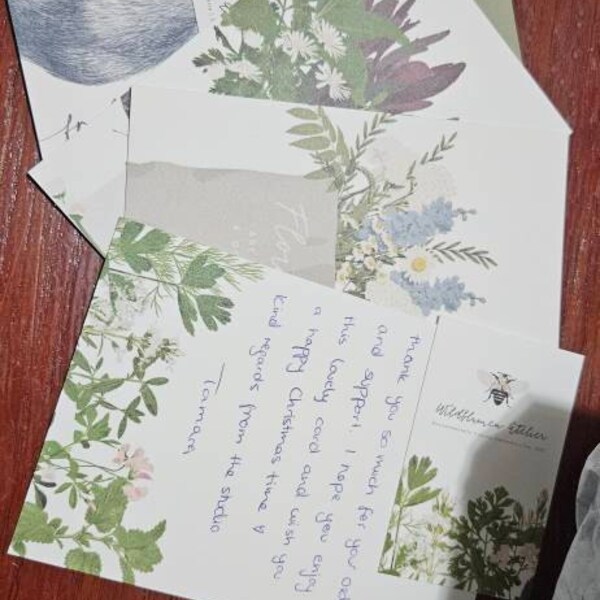 Thank you so much for you
and support. I hope you enjoy
this lovely card and wish you
a happy Christmas time
Kind regards from the studio
Tamara